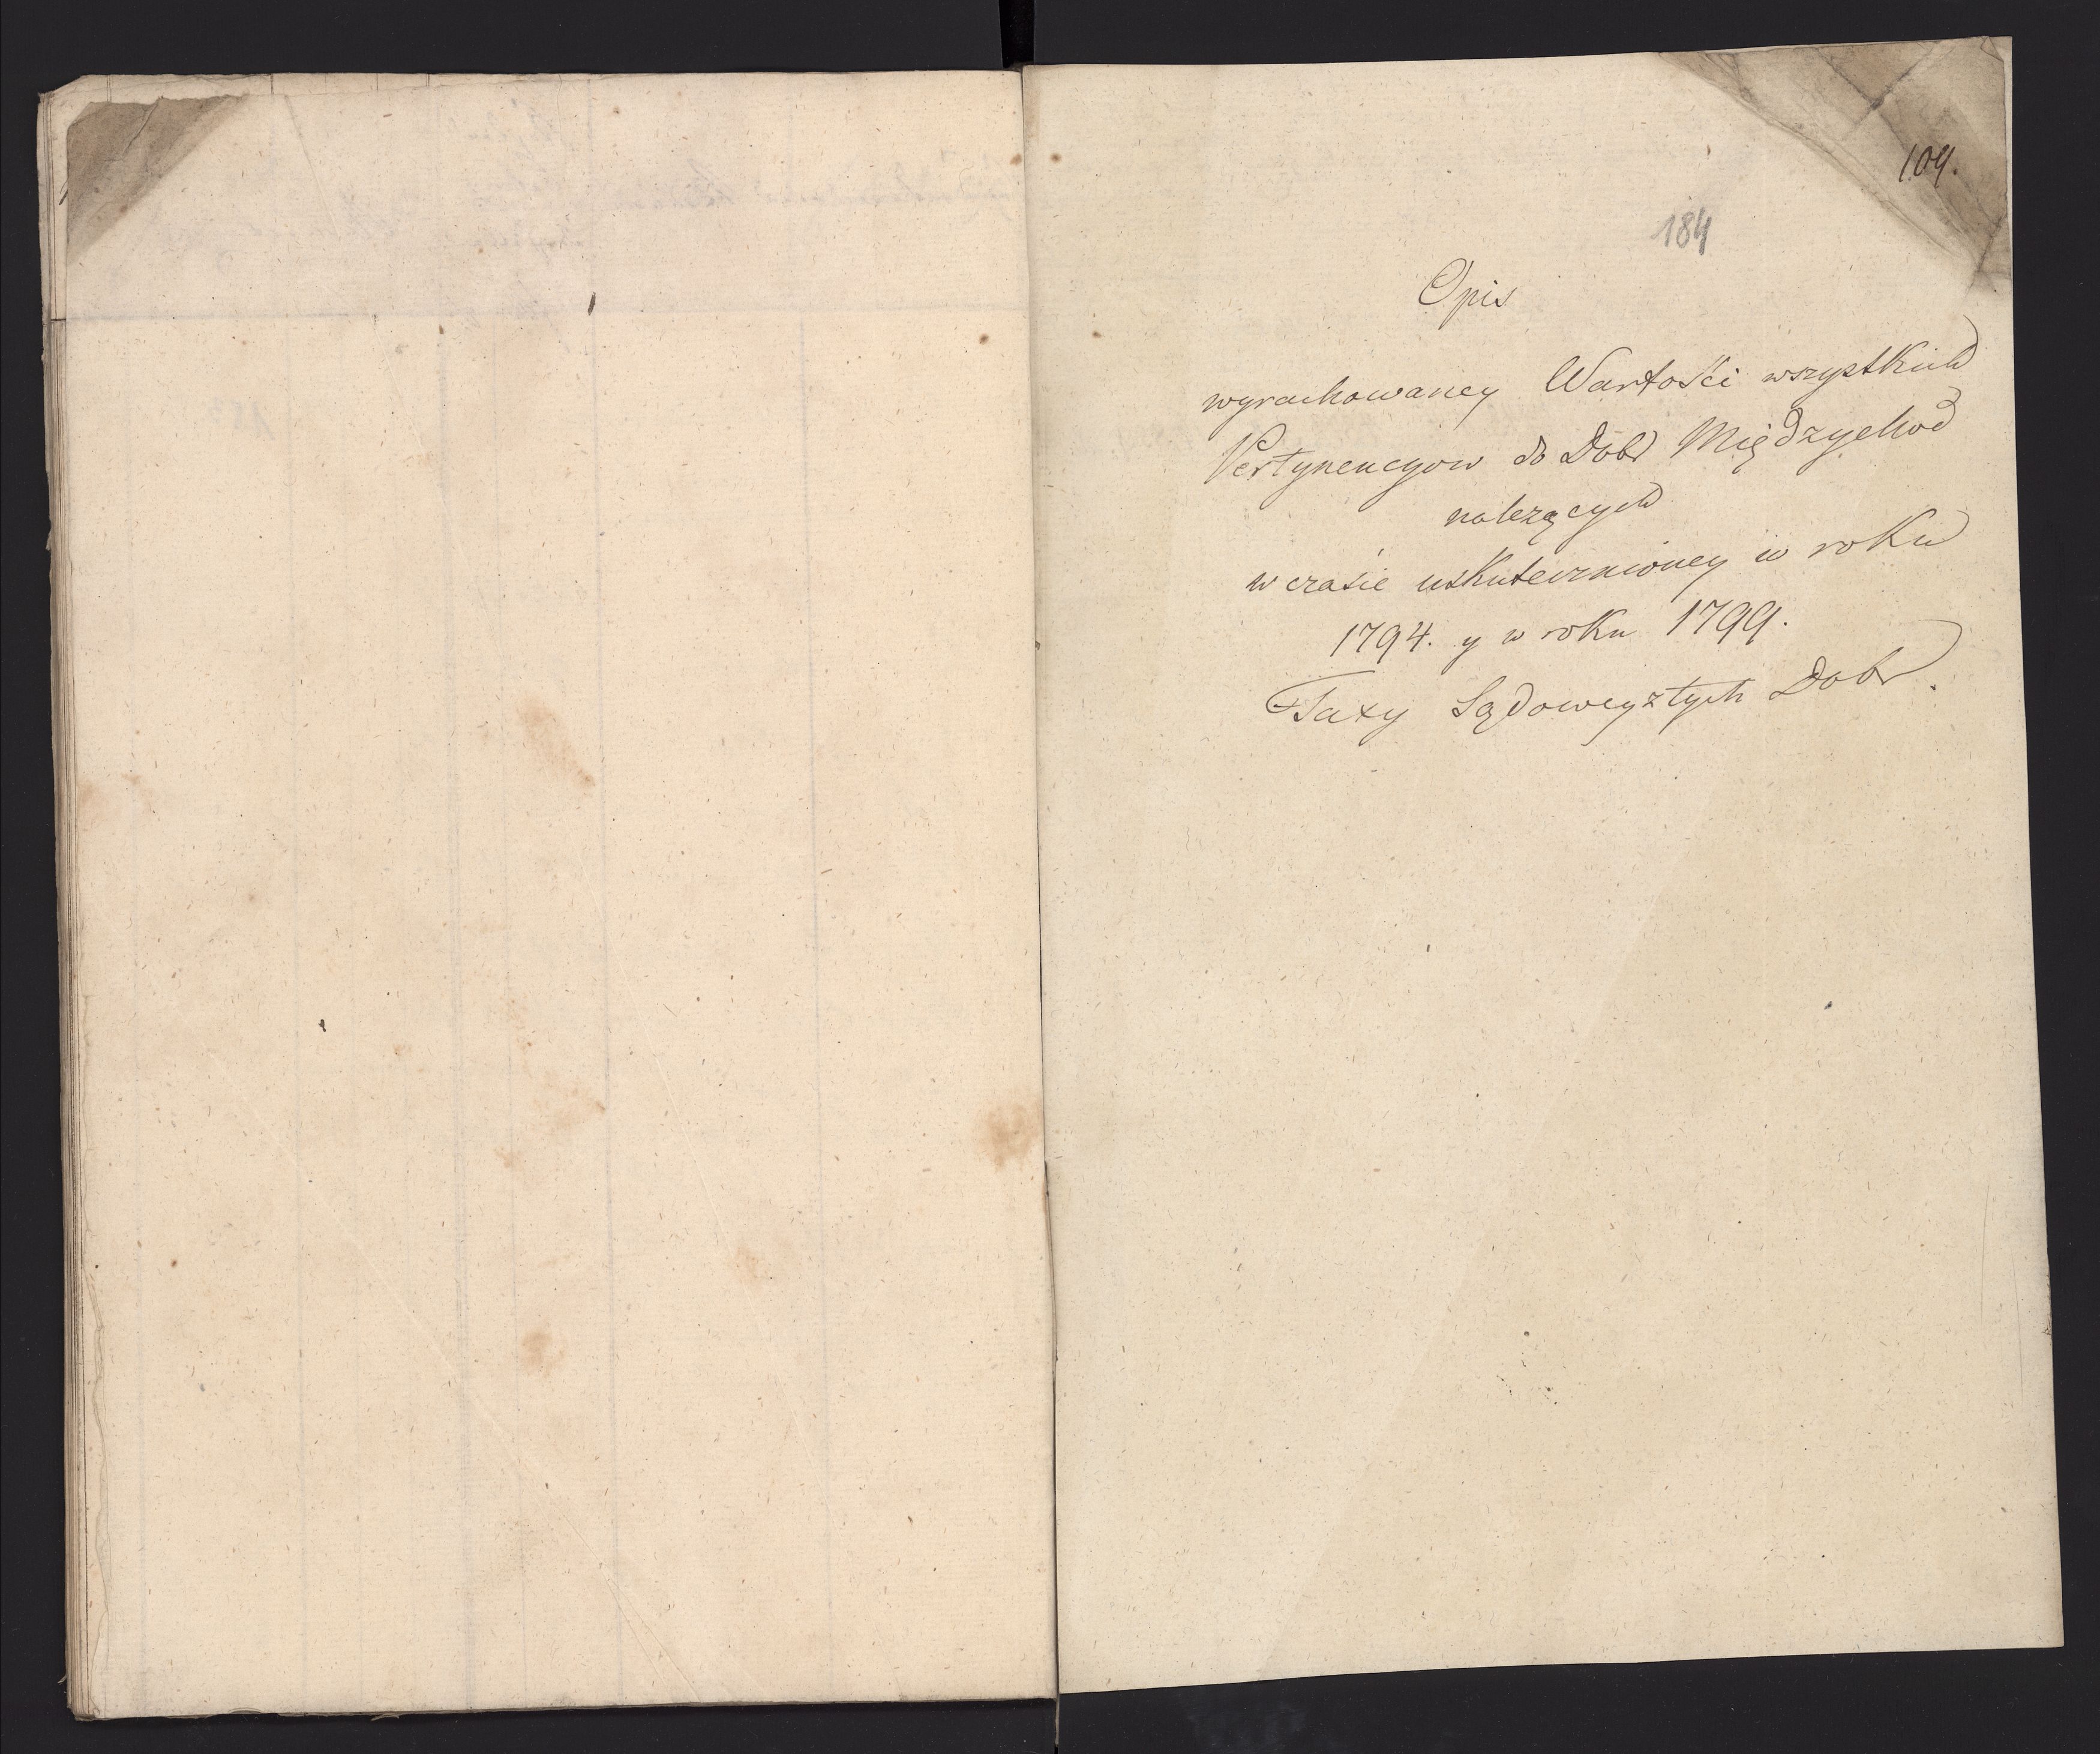 109.
184
Opis
wyrachowaney Wartości wszystkich
Pertynencyow do Dobr Międzychod
należących
w czasie uskutecznioney w roku
1794. y w roku 1799.
Taxy Sądowey tych Dobr.